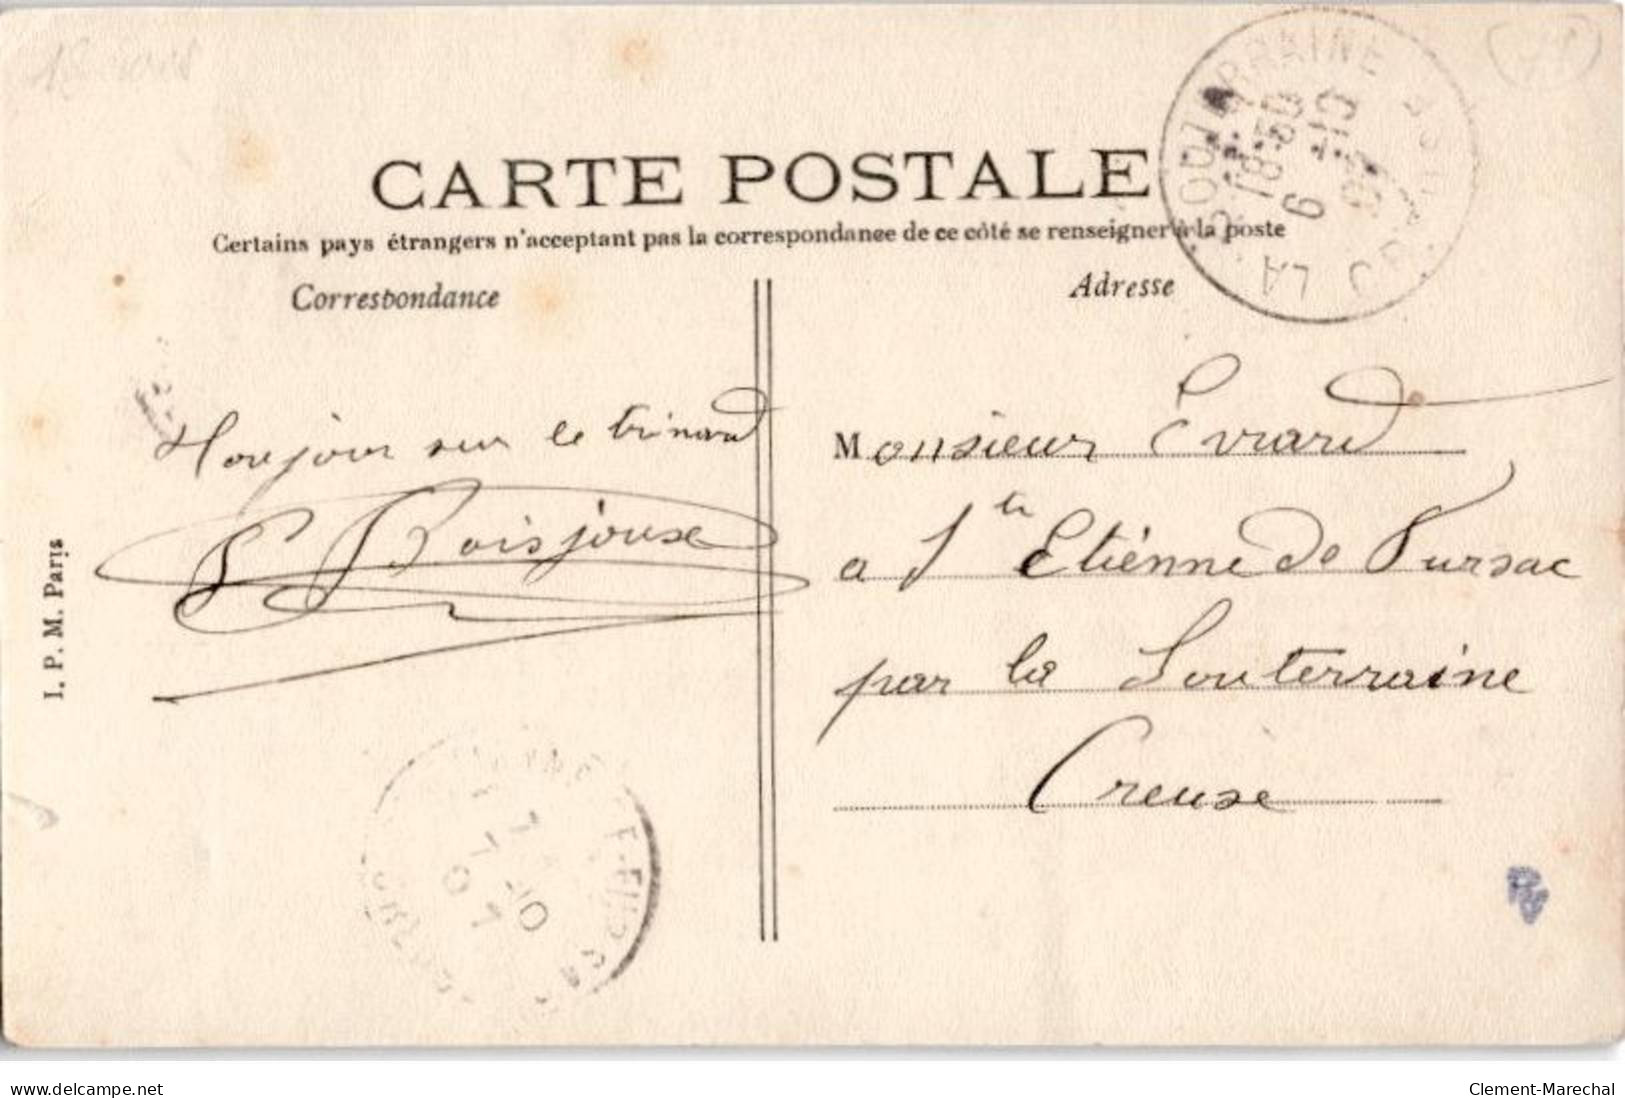 CARTE POSTALE
Certains pays étrangers n'acceptant pas la correspondance de ce côté se renseigner à la poste
Correspondance
Adresse
Toujour sur le trimard
P Boisjouse
Monsieur Evrard
a St Etiénne de Fursac
par la Souterraine
Creuse
I. P. M. Paris
LA SOUTERRAINE
18-50
6 -10
CREUSE
7 -10
07
www.delcampe.net
Clement-Marechal